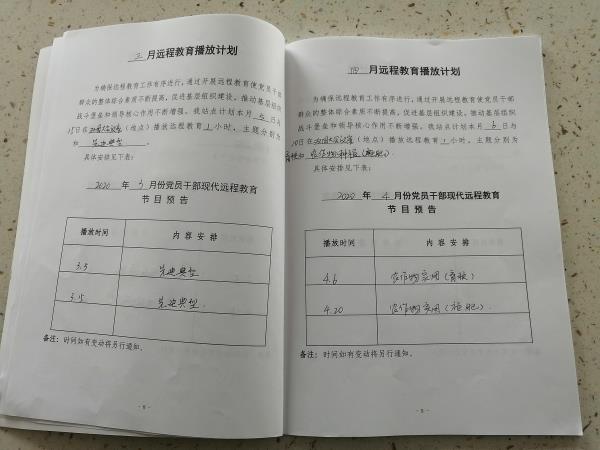 三 月远程教育播放计划
为确保远程教育工作有序进行,通过开展远程教育使党员干部
群众的整体综合素质不断提高,促进基层组织建设,推动基层组织
战斗堡垒和领导核心作用不断增强。我站点计划本月 5 日与
15日在 (地点)播放远程教育 1 小时。主题分别为
和 先进典型 。
具体安排见下表:
2020 年 3 月份党员干部现代远程教育
节 目 预 告
播放时间 内 容 安 排
3.5 先进典型
3.15 先进典型.
备注:时间如有变动将另行通知。
- 8 -
四 月远程教育播放计划
为确保远程教育工作有序进行,通过开展远程教育使党员干部
群众的整体综合素质不断提高,促进基层组织建设,推动基层组织
战斗堡垒和领导核心作用不断增强。我站点计划本月 与
在 (地点)播放远程教育 1 小时。主题分别为
和 农作物
具体安排见下表:
2020 年 4 月份党员干部现代远程教育
节 目 预 告
播放时间 内 容 安 排
4.6 农作物实用
4.20 农作物实用
备注:时间如有变动将另行通知。
- 9 -